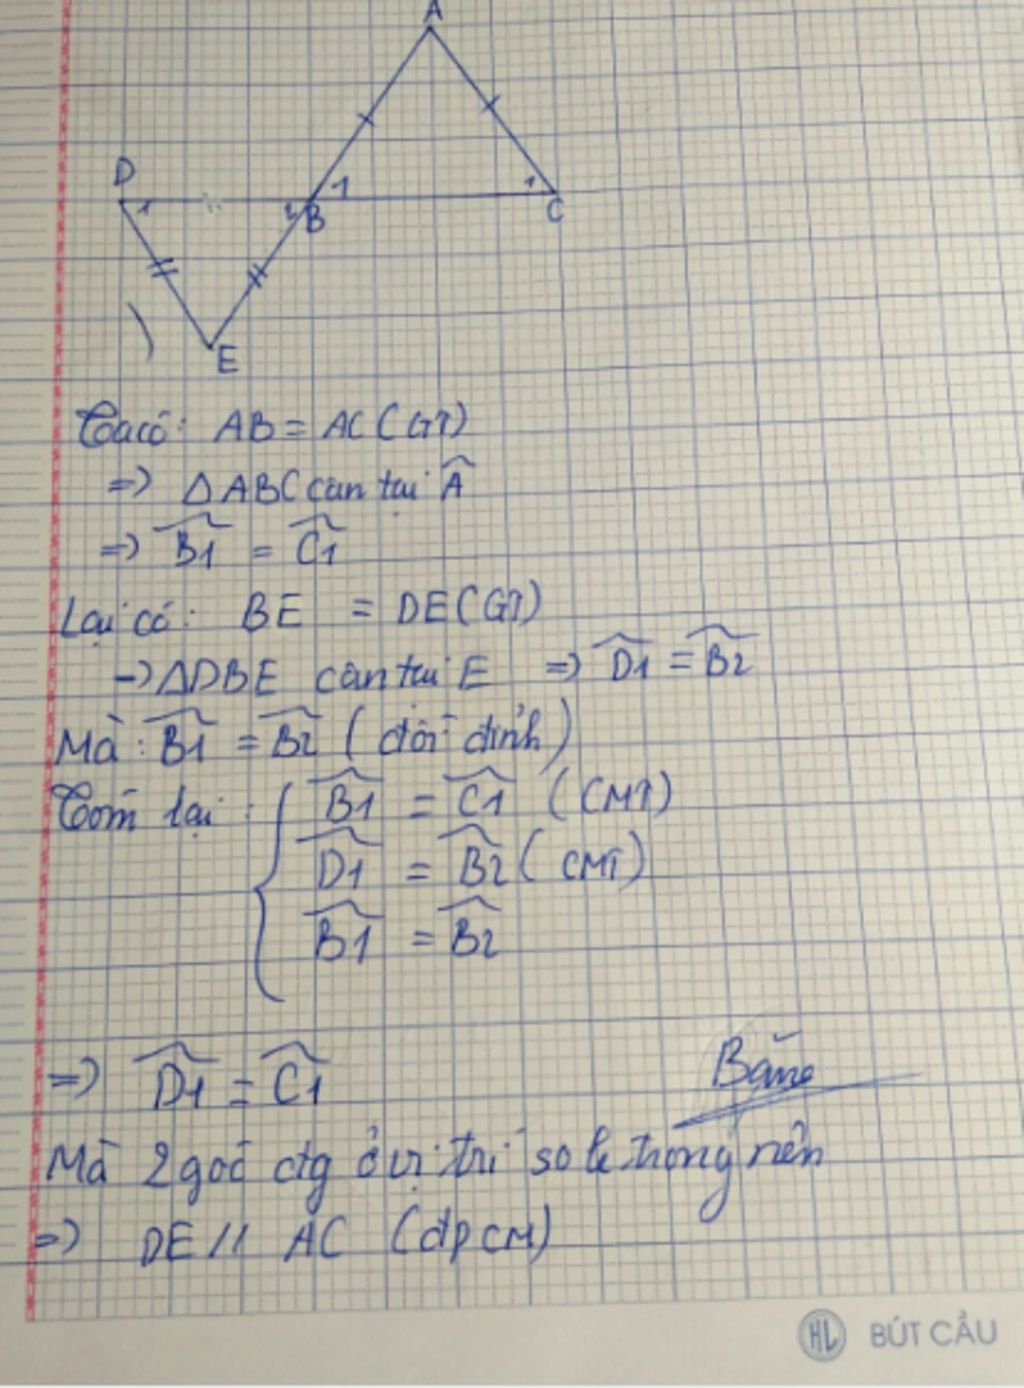 A
D
1
2
B
1
1
C
E
Ta có: AB = AC (GT)
=> ΔABC cân tại Â
=> B1 = C1
Lại có: BE = DE (GT)
-> ΔDBE cân tại E => D1 = B2
Mà: B1 = B2 (đối đỉnh)
Tóm lại: B1 = C1 (CMT)
D1 = B2 (CMT)
B1 = B2
=> D1 = C1
Mà 2 góc ở vị trí so le trong nên
=> DE // AC (đpCM)
HL BÚT CẦU